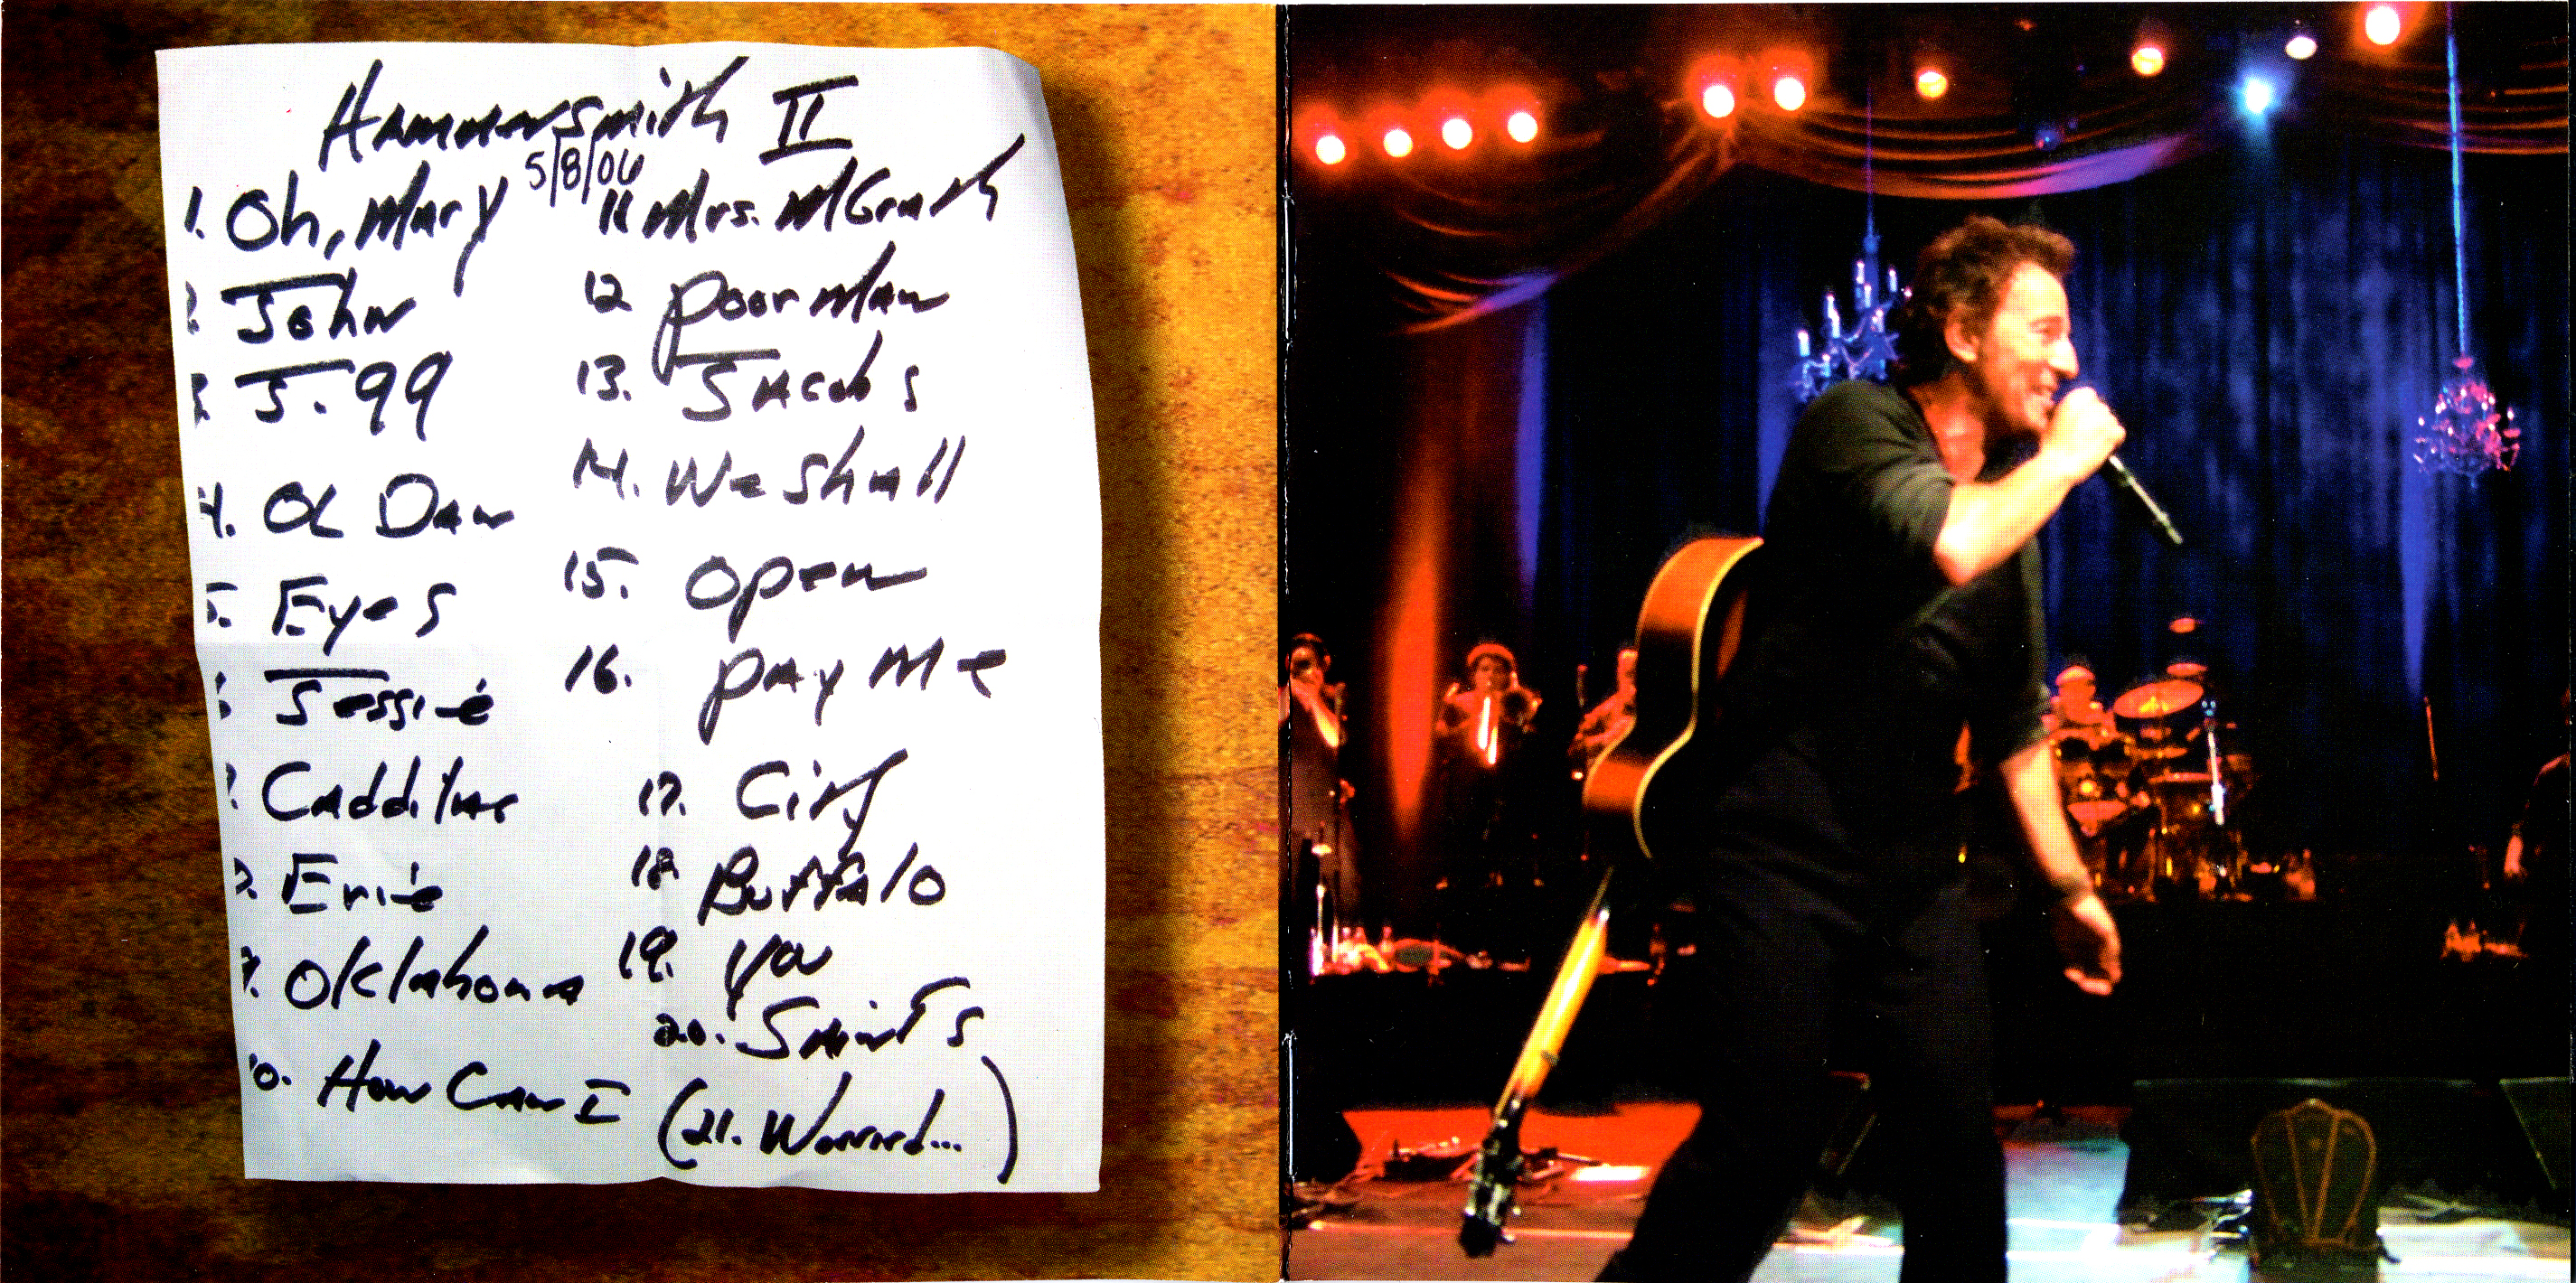 Hammersmith II
5/8/06
1. Oh, Mary
2. John
3. J. 99
4. Ol Dan
5. Eyes
6. Jessie
7. Caddilac
8. Erie
9. Oklahoma
10. How Can I
11 Mrs. McGrath
12 Poor Man
13. Jacobs
14. We Shall
15. Open
16. Pay Me
17. City
18 Buffalo
19. You
20. Saints
(21. Worried...)